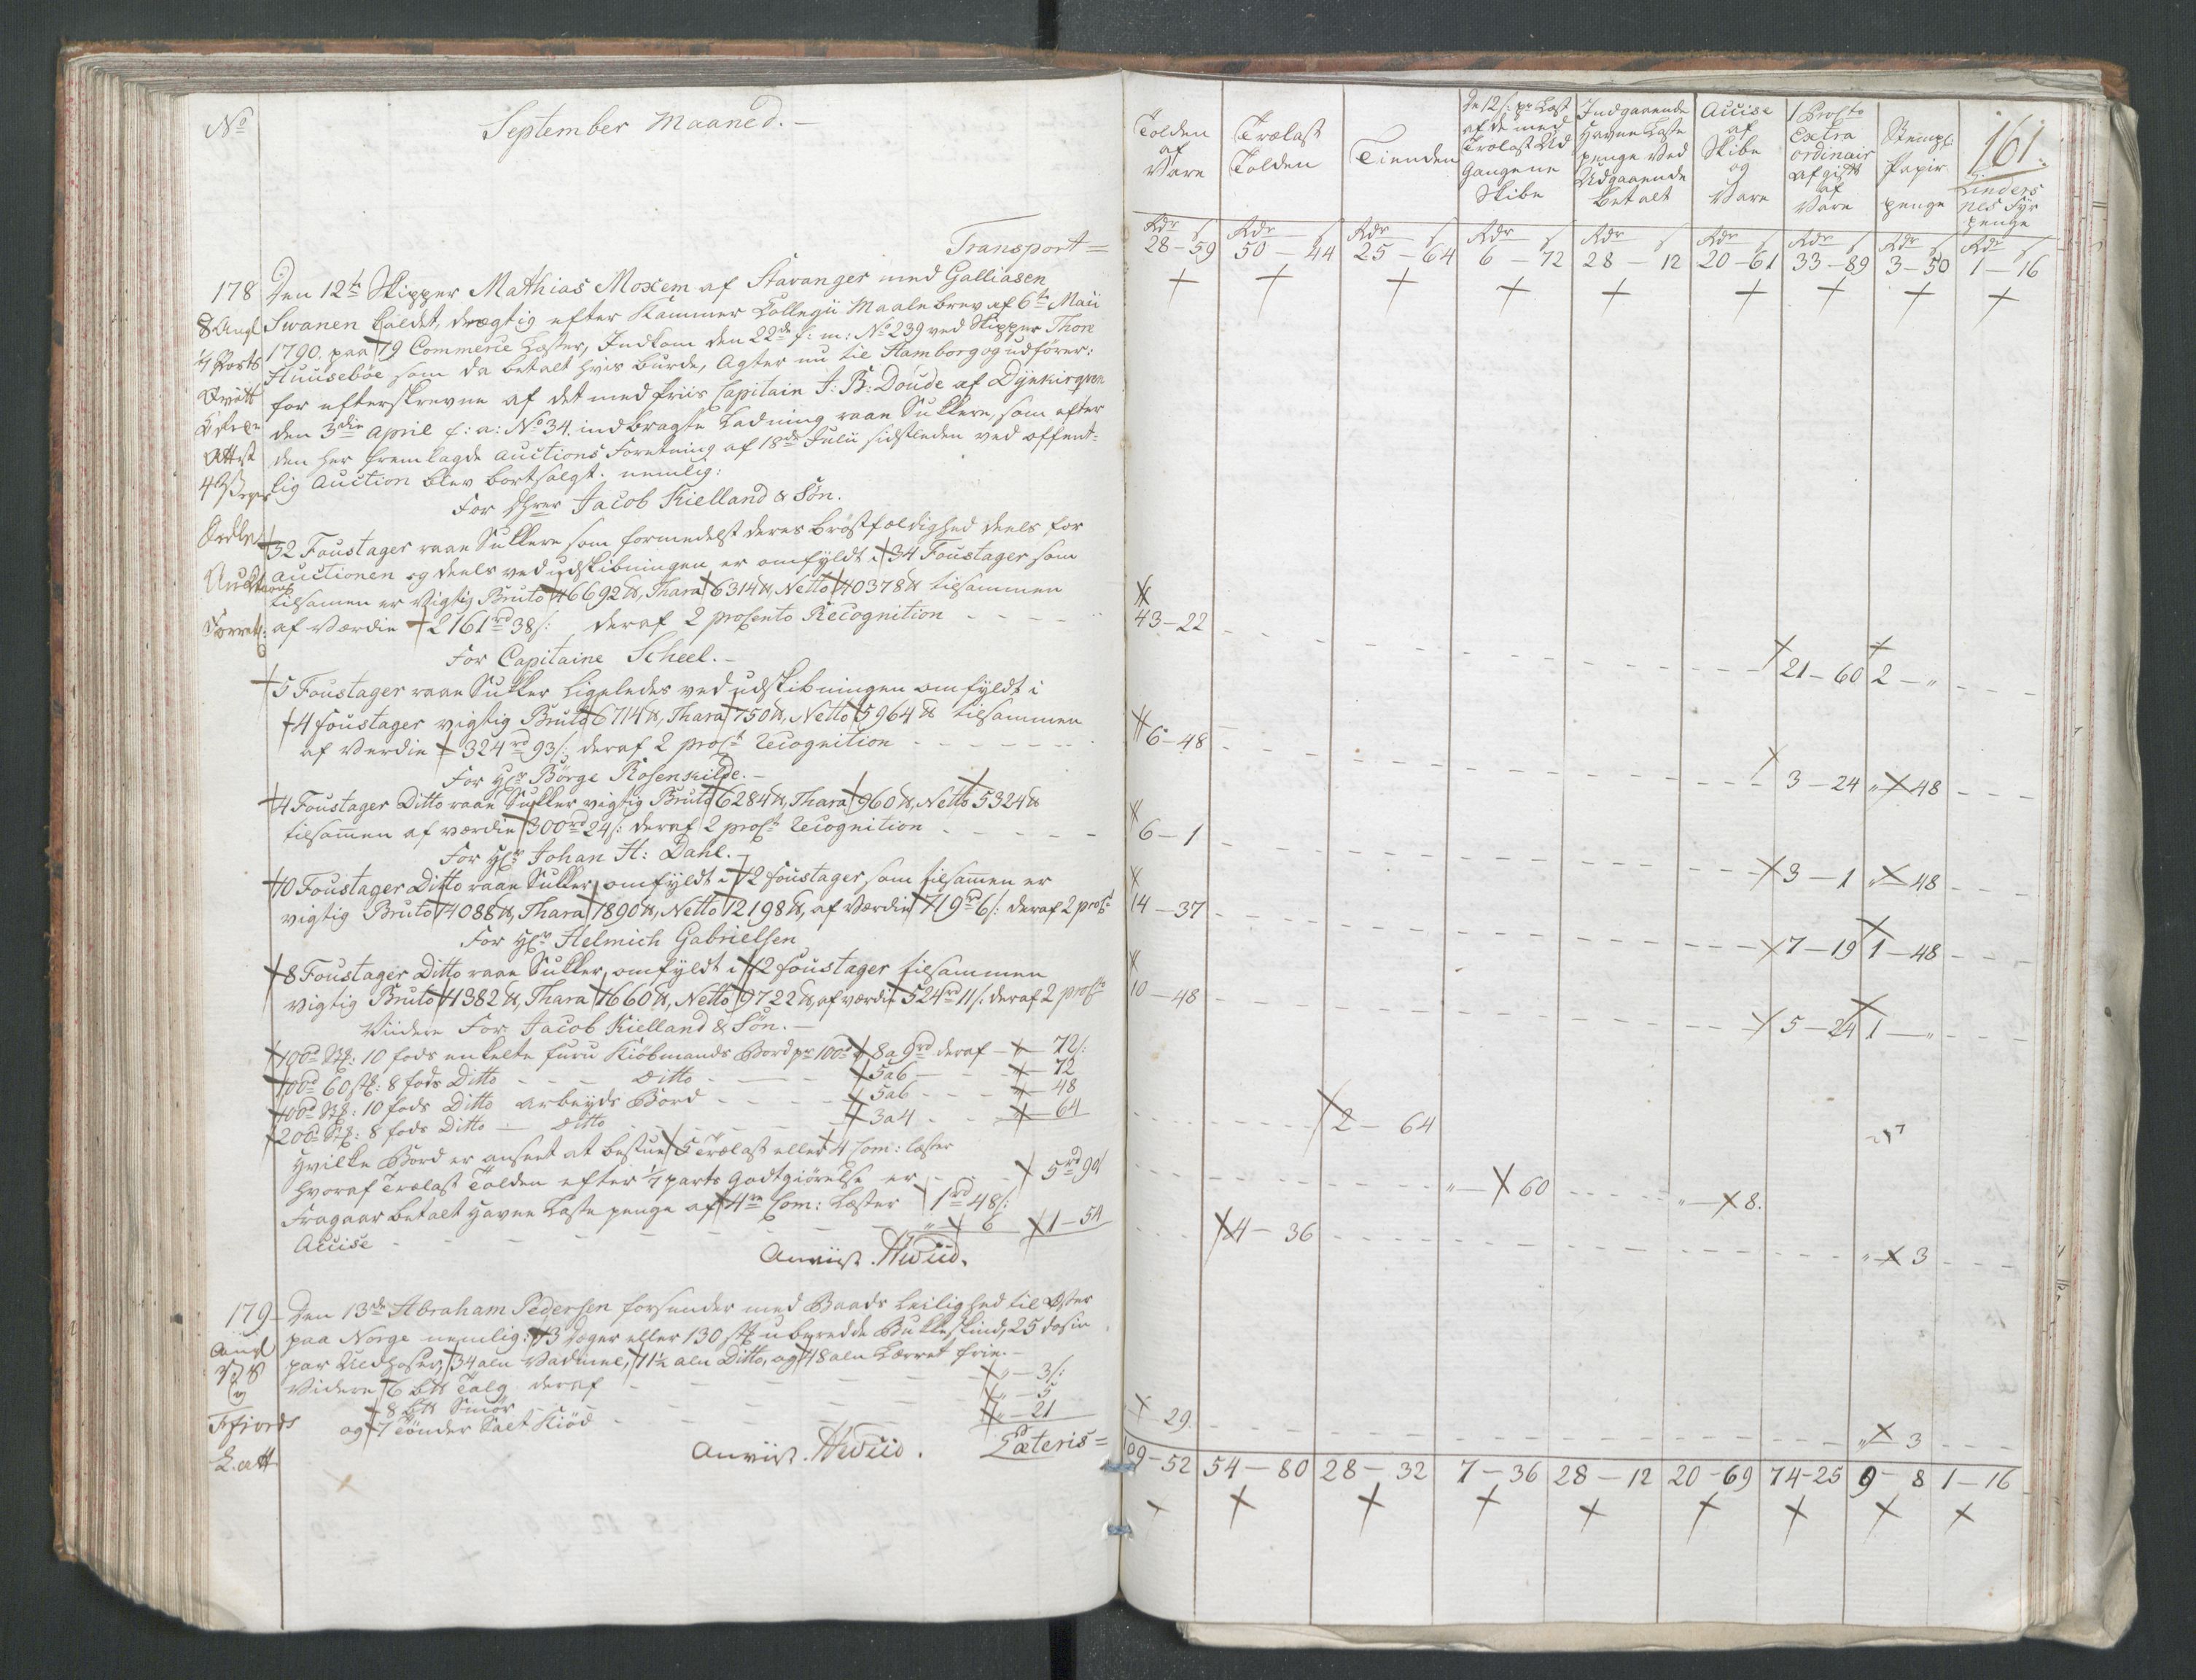 No
September Maaned.
Transport =
178
8 Angl
1/7 Parts
Attest
4 Seper
Ordre
Auctions
Forrett:
Den 12te Skipper Mathias Moxem af Stavanger med Galliasen
Swanen kaldet, drægtig efter Kammer Collegii Maalebrev af 6te Maii
1790. paa 79 Commerce Læster, Indkom den 22de f: m: No 239 ved Skipper Thore
Huusebøe som da betalt hvis burde, Agter nu til Hamborg og udfører:
for efterskrevne af det med Priis Capitain J: B: Doude af Dynkirqven
den 3die April h: a: No 34. indbragte Ladning raae Sukkere, som efter
den her fremlagde Auctions Forretning af 18de Julii sidstleden ved offent-
lig Auction blev bortsolgt. nemlig:
For Hrer Jacob Kielland & Søn.
32 Foustager raae Sukkere som formedelst deres brøstfældighed deels for
Auctionen og deels ved udskibningen er omfyldt i 34 Foustager som
tilsamen er vigtig Bruto 46692 ℔, Thara 6314 ℔, Netto 40378 ℔ tilsammen
af Værdie 2161 rd 38 s: deraf 2 procento Recognition
For Capitaine Scheel.
5 Foustager raae Sukker ligeledes ved udskibningen omfyldt i
4 foustager vigtig Bruto 6714 ℔, Thara 750 ℔, Netto 5964 ℔ tilsammen
af Verdie 324 rd 93 s: deraf 2 proct Recognition
For Hr Børge Rosenkilde.
4 Foustager Ditto raae Sukker vigtig Bruto 6284 ℔, Thara 960 ℔, Netto 5324 ℔
tilsamen af værdie 300 rd 24 s: deraf 2 proct Recognition
For Hr Johan H: Dahl.
10 Foustager Ditto raae Sukker, omfyldt i 12 foustager som tilsamen er
vigtig Bruto 14088 ℔, Thara 1890 ℔, Netto 12198 ℔, af Værdie 719 rd 6 s: deraf 2 proct
For Hr Helmich Gabrielsen
8 Foustager Ditto raae Sukker, omfyldt i 12 foustager tilsammen
vigtig Bruto 11382 ℔, Thara 1660 ℔, Netto 9722 ℔, af værdie 524 rd 11 s: deraf 2 procto
Viidere For Jacob Kielland & Søn.
100d Stk: 10 fods enkelte furu Kiøbmands Bord pr 100d 8 a 9 rd deraf 72 s:
100d 60 stk: 8 fods Ditto Ditto 5 a 6 72
100d Stk: 10 fods Ditto Arbeyds Bord 5 a 6 48
200d Stk: 8 fods Ditto Ditto 3 a 4 64
Hvilke Bord er anseet at bestue 5 Trælast eller 4 Com: læster
hvoraf Trælast Tolden efter 1/7 parts Godtgiørelse er 5 rd 90
Fragaar betalt Havne Laste penge af 4re Com: Læster 1 rd 48 s:
Accise 6 1 - 54
Anviist. Hwiid.
179
Angl
No 8
og
Fjords
Z.att
Den 13de Abraham Pedersen forsender med Baads leilighed til Øster
paa Norge nemlig: 13 Deger eller 130 stk uberedde Bukkeskind, 25 dosin
par Uldhoser, 34 alen Vadmel, 71½ alen Ditto, og 48 alen Lærret frie.
Videre 6 b℔ Talg deraf 3 s:
8 b℔ Smør 5
og 7 Tønder Salt Kiød 21
Anviist. Hwiid. Lateris =
Tolden af Vare
Trælast Tolden
Tienden
De 12 s: pr Læst af de med Trælast Udgangene Skibe
Indgaaende Havne Laste penge ved Udgaaende betalt
Accise af Skibe og Vare
1 Procto Extra ordinair afgivt af Vare
Stempl: Papir penge
161.
Lindersnes Fyr penge
Rdr s Rdr s Rdr s Rdr s Rdr s Rdr s Rdr s Rdr s Rdr s
28 - 59 50 - 44 25 - 64 6 - 72 28 - 12 20 - 61 33 - 89 3 - 50 1 - 16
43 - 22 21 - 60 2 - "
6 - 48 3 - 24 " - 48
6 - 1 3 - 1 " - 48
14 - 37 7 - 19 1 - 48
10 - 48 5 - 24 1 - "
2 - 64
" - 60 " - 8.
4 - 36 " - 3
" 29. " - 3
109 - 52 54 - 80 28 - 32 7 - 36 28 - 12 20 - 69 74 - 25 9 - 8 1 - 16